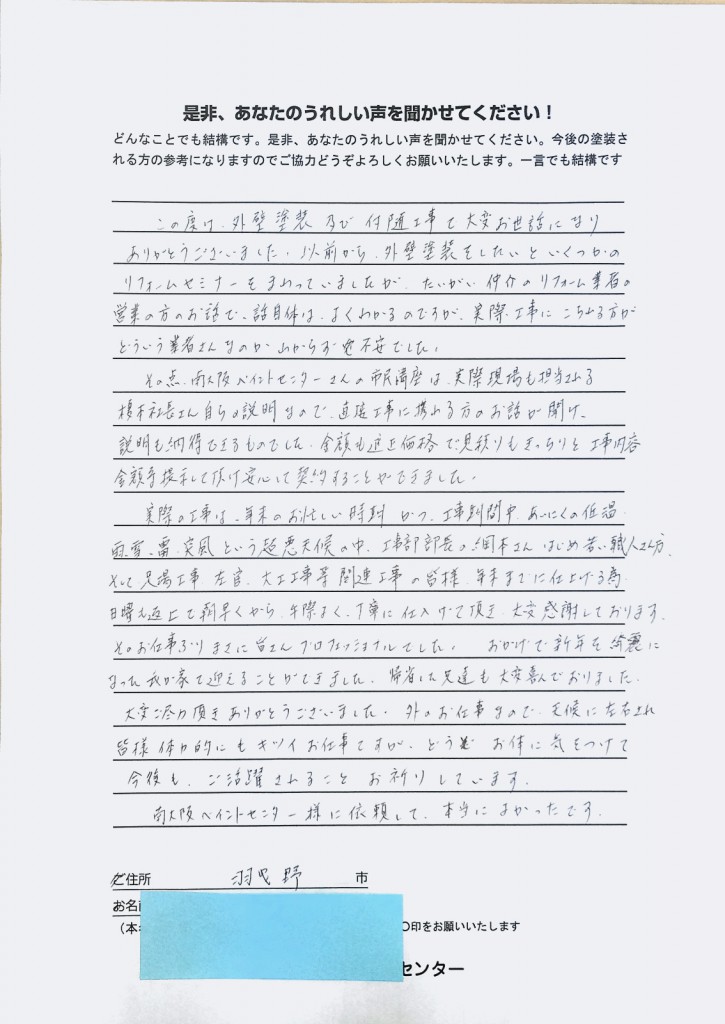 是非、あなたのうれしい声を聞かせてください！
どんなことでも結構です。是非、あなたのうれしい声を聞かせてください。今後の塗装さ
れる方の参考になりますのでご協力どうぞよろしくお願いいたします。一言でも結構です
この度は、外壁塗装及び付随工事で大変お世話になり
ありがとうございました。以前から、外壁塗装をしたいといくつかの
リフォームセミナーをまわっていましたが、たいがい仲介のリフォーム業者の
営業の方のお話で、話自体は、よくわかるのですが、実際、工事にこられる方が
どういう業者さんなのかわからず不安でした。
その点、南大阪ペイントセンターさんの市民講座は、実際現場も担当される
榎木社長さん自らの説明なので、直接工事に携れる方のお話が聞け、
説明も納得できるものでした。金額も適正価格で見積りもきっちりと工事内容
金額等提示して頂け安心して契約することができました。
実際の工事は、年末のお忙しい時期かつ、工事期間中、あいにくの低温
雨、雪、雷、突風という超悪天候の中、工事部部長の細木さんはじめ若い職人さん方、
そして足場工事、左官、大工工事等関連工事の皆様、年末までに仕上げる為
日曜も返上で朝早くから、手際よく、丁寧に仕上げて頂き、大変感謝しております。
そのお仕事ぶりまさに皆さんプロフェッショナルでした。おかげで新年を綺麗に
なった我が家で迎えることができました。帰省した兄達も大変喜んでおりました。
大変ご尽力頂きありがとうございました。外のお仕事なので、天候に左右され
皆様体力的にもキツイお仕事ですが、どうぞお体に気をつけて
今後も、ご活躍されることお祈りしています。
南大阪ペイントセンター様に依頼して、本当によかったです。
ご住所 羽曳野 市
お名前
（本 〇印をお願いいたします
センター